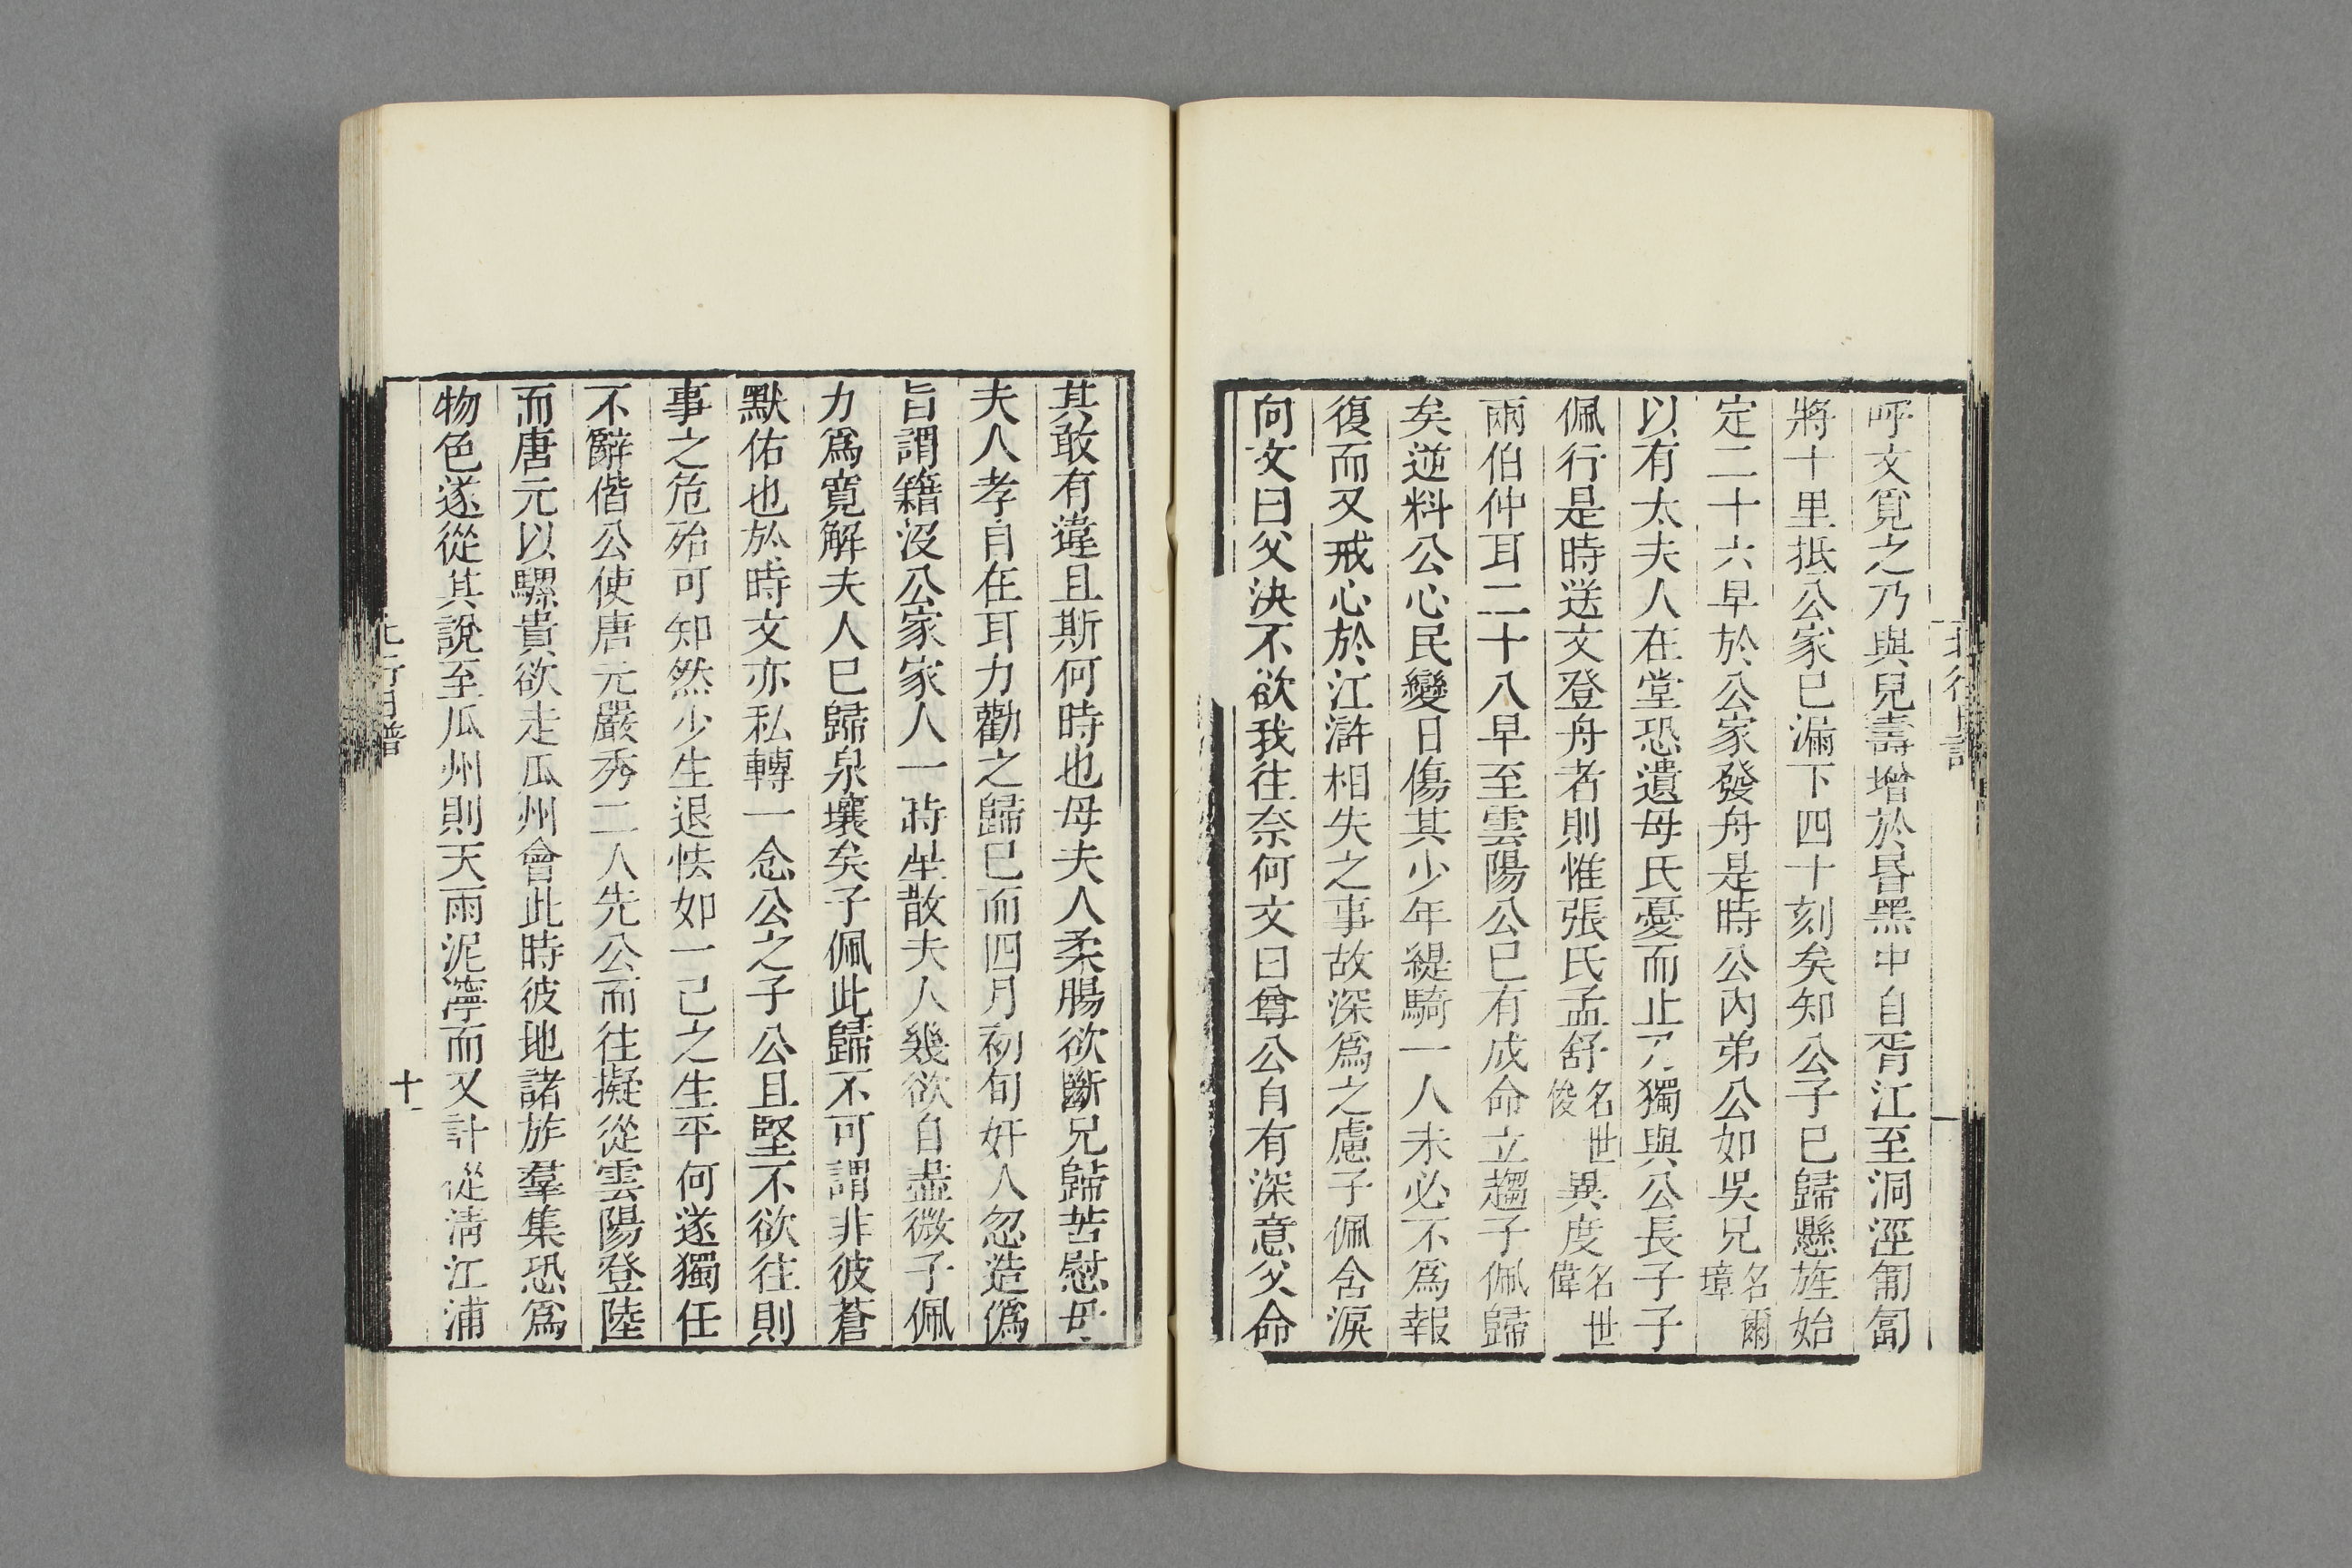 呼文覓之乃與兒壽增於昏黑中自胥江至洞涇匍匐
將十里抵公家已漏下四十刻矣知公子已歸懸旌始
定二十六早於公家發舟是時公內弟公如吳兄名爾璋
以有太夫人在堂恐遺母氏憂而止乃獨與公長子子
佩行是時送文登舟者則惟張氏孟舒名世俊異度名世偉
兩伯仲耳二十八早至雲陽公已有成命立趨子佩歸
矣逆料公心民變日傷其少年緹騎一人未必不爲報
復而又戒心於江滸相失之事故深爲之慮子佩含淚
向文曰父決不欲我往奈何文曰尊公自有深意父命
其敢有違且斯何時也母夫人柔腸欲斷兄歸苦慰母
夫人孝自在耳力勸之歸已而四月初旬奸人忽造僞
旨謂籍没公家家人一時坌散夫人幾欲自盡微子佩
力爲寬解夫人已歸泉壤矣子佩此歸不可謂非彼蒼
默佑也於時文亦私轉一念公之子公且堅不欲往則
事之危殆可知然少生退怯如一己之生平何遂獨任
不辭偕公使唐元嚴秀二人先公而往擬從雲陽登陸
而唐元以騾貴欲走瓜州會此時彼地諸旂羣集恐爲
物色遂從其說至瓜州則天雨泥濘而又計從淸江浦
北行日譜
十